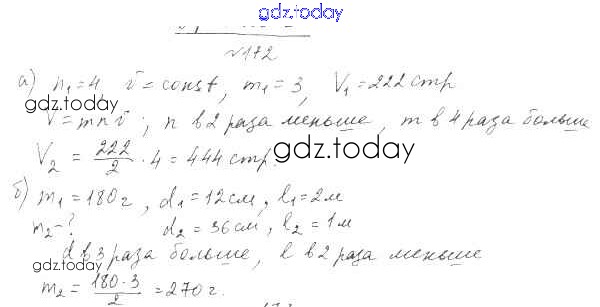 gdz.today
№172
а) n₁=4, v̄=const, m₁=3, V₁=222 стр
gdz.today
V=mnv̄; n в 2 раза меньше, m в 4 раза больше
V₂ = 222/2 · 4 = 444 стр.
gdz.today
б) m₁=180г, d₁=12см, l₁=2м
m₂-? d₂=36см, l₂=1м
d в 3 раза больше, l в 2 раза меньше
gdz.today
m₂ = 180·3/2 = 270г.